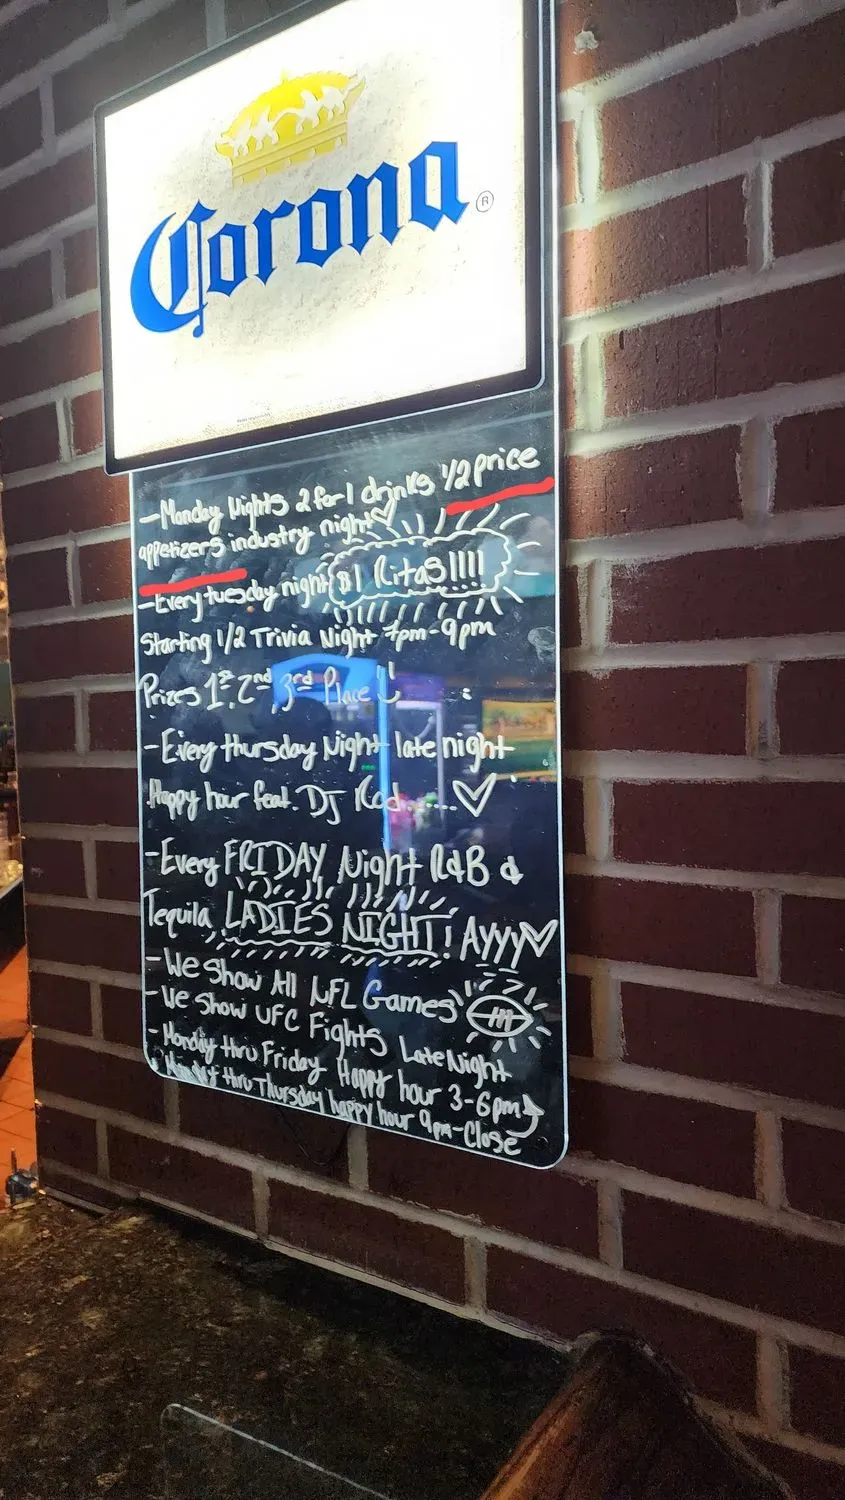 Corona
®
-Monday Nights 2 for 1 drinks 1/2 price
appetizers industry night
-Every tuesday night $1 Ritas!!!!
Starting 1/2 Trivia Night 7pm-9pm
Prizes 1st, 2nd, 3rd Place
-Every thursday Night late night
Happy hour feat. DJ Rod......
-Every FRIDAY Night R&B &
Tequila LADIES NIGHT! AYYY
-We Show All NFL Games
-We Show UFC Fights
-Monday thru Friday Happy hour 3-6pm
Late Night
Monday thru Thursday happy hour 9pm-Close